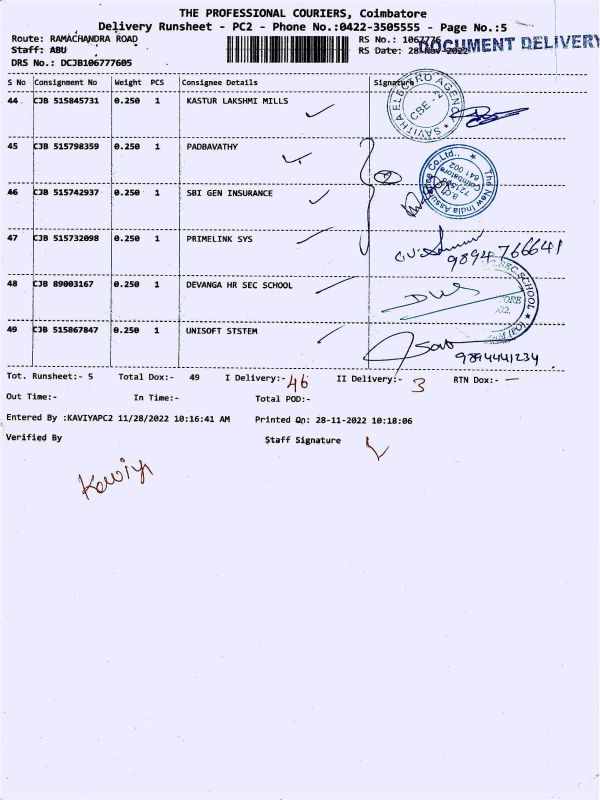 THE PROFESSIONAL COURIERS, Coimbatore
Delivery Runsheet - PC2 - Phone No.:0422-3505555 - Page No.:5
Route: RAMACHANDRA ROAD RS No.: 1067776
Staff: ABU RS Date: 28-Nov-2022
DOCUMENT DELIVERY
DRS No.: DCJB106777605
S No Consignment No Weight PCS Consignee Details Signature
44 CJB 515845731 0.250 1 KASTUR LAKSHMI MILLS
SAVITHA ELECTRO AGENCY
CBE - 2
45 CJB 515798359 0.250 1 PADBAVATHY
The New India Assurance Co.Ltd.,
Coimbatore
641 002
46 CJB 515742937 0.250 1 SBI GEN INSURANCE
47 CJB 515732098 0.250 1 PRIMELINK SYS
9894766641
48 CJB 89003167 0.250 1 DEVANGA HR SEC SCHOOL
SEC SCHOOL
49 CJB 515867847 0.250 1 UNISOFT STSTEM
9894441234
Tot. Runsheet:- 5 Total Dox:- 49 I Delivery:- 46 II Delivery:- 3 RTN Dox:- —
Out Time:- In Time:- Total POD:-
Entered By :KAVIYAPC2 11/28/2022 10:16:41 AM Printed On: 28-11-2022 10:18:06
Verified By Staff Signature
Kaviya